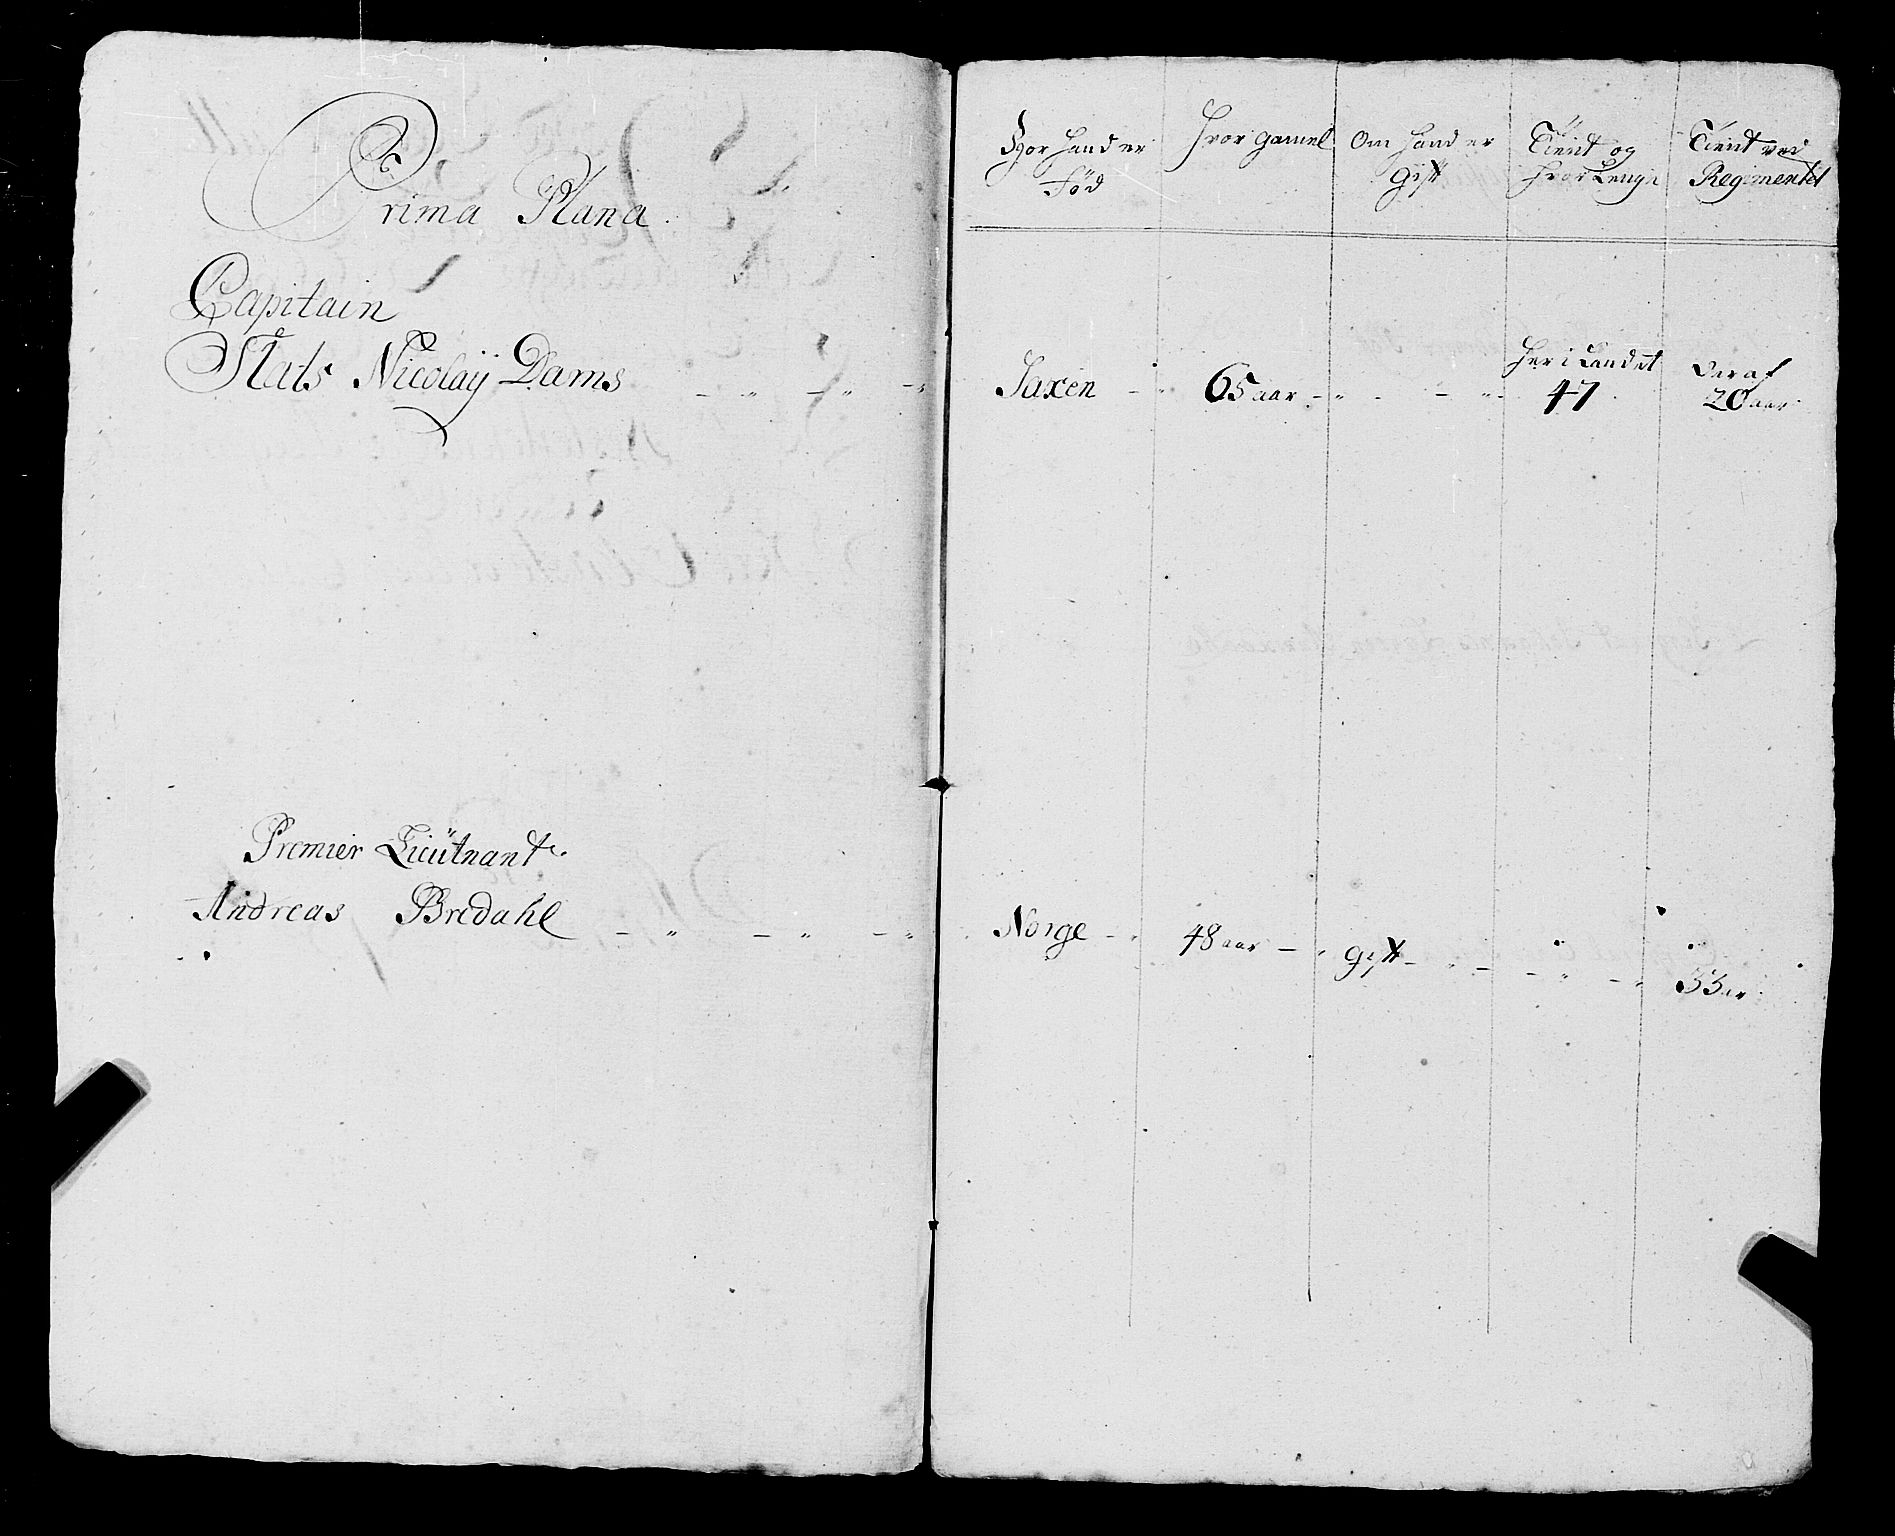 Prima Plana.
Capitain
Stats Nicolaÿ Dams
Premier Lieütnant.
Andreas Bredahl
Hvor hand er
Fød
Hvor gamel
Om hand er
gift
Tient og
hvor Lenge
Tient ved
Regimentet
Saxen
65 aar
her i Landet
47
Deraf
20 aar
Norge
48 aar
gift
33 ar